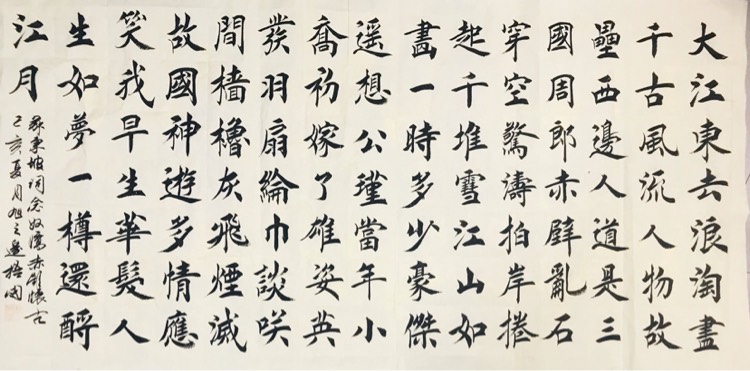 大江東去浪淘盡
千古風流人物故
壘西邊人道是三
國周郎赤壁亂石
穿空驚濤拍岸捲
起千堆雪江山如
畫一時多少豪傑
遥想公瑾當年小
喬初嫁了雄姿英
發羽扇綸巾談咲
間檣櫓灰飛煙滅
故國神遊多情應
笑我早生華髮人
生如夢一樽還酹
江月
東坡詞念奴嬌赤壁懷古
己亥夏月